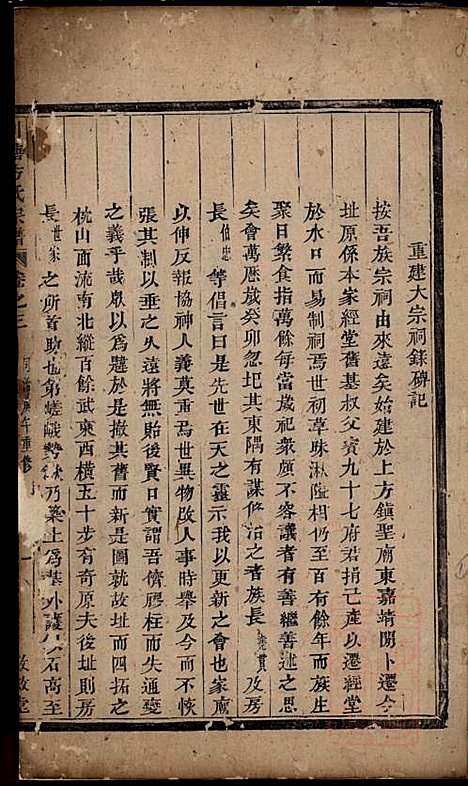 重建大宗祠錄碑記
按吾族宗祠由來遠矣始建於上方鎮聖廟東嘉靖間卜遷今
址原係本家經堂舊基叔父賓九十七府君捐己產以遷經堂
於水口而易制祠焉世初草昧湫隘相仍至百有餘年而族生
聚日繁食指萬餘每當歲祀衆頗不容議者有善繼善述之思
矣會萬歷歲癸卯忽圮其東隅有謀修治之者族長 貫 及房
長 伯忠 等倡言曰是先世在天之靈示我以更新之會也家廟
以伸反報協神人義莫重焉世異物改人事時舉及今而不恢
張其制以垂之久遠將無貽後賢日實謂吾儕膠柱而失通變
之義乎哉咸以爲韙於是撤其舊而新是圖就故址而四拓之
枕山而流南北縱百餘武東西橫五十步有奇原夫後址則房
長 世家 之所首助也第嵯峨勢 乃築土爲基外護 石高至
方氏宗譜 卷之三 午重修 一 敦敘堂